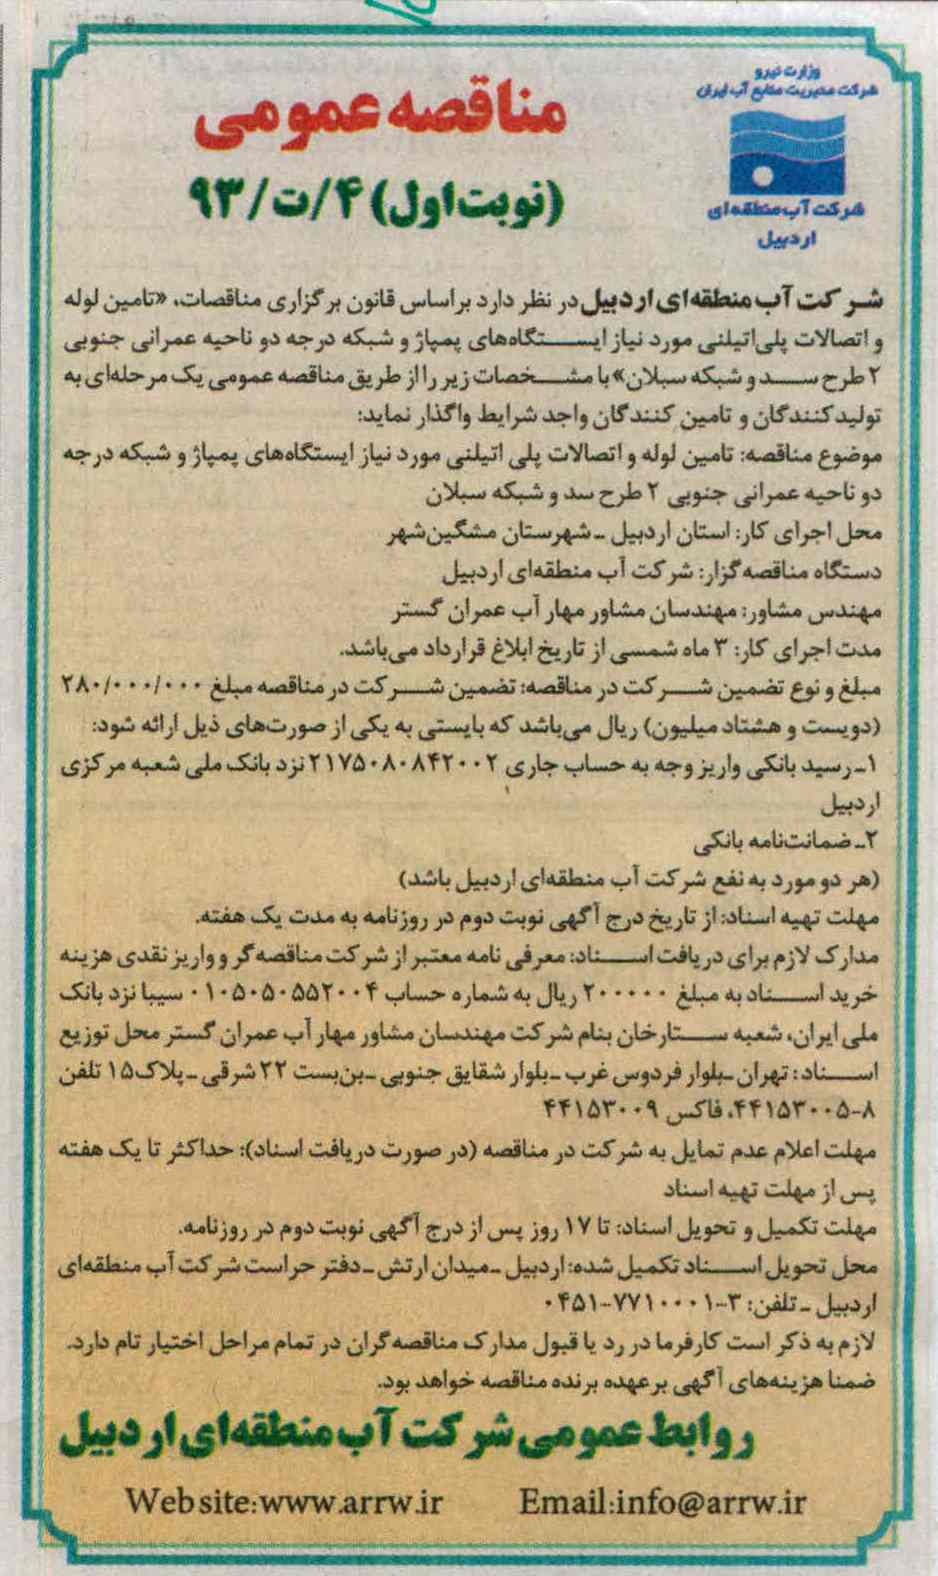 وزارت نیرو
شرکت مدیریت منابع آب ایران
شرکت آب منطقه‌ای
اردبیل
مناقصه عمومی
(نوبت اول) ۴/ت/۹۳
شرکت آب منطقه‌ای اردبیل در نظر دارد براساس قانون برگزاری مناقصات، «تامین لوله
و اتصالات پلی‌اتیلنی مورد نیاز ایستگاه‌های پمپاژ و شبکه درجه دو ناحیه عمرانی جنوبی
۲ طرح سد و شبکه سبلان» با مشخصات زیر را از طریق مناقصه عمومی یک مرحله‌ای به
تولیدکنندگان و تامین کنندگان واجد شرایط واگذار نماید:
موضوع مناقصه: تامین لوله و اتصالات پلی اتیلنی مورد نیاز ایستگاه‌های پمپاژ و شبکه درجه
دو ناحیه عمرانی جنوبی ۲ طرح سد و شبکه سبلان
محل اجرای کار: استان اردبیل ـ شهرستان مشگین‌شهر
دستگاه مناقصه گزار: شرکت آب منطقه‌ای اردبیل
مهندس مشاور: مهندسان مشاور مهار آب عمران گستر
مدت اجرای کار: ۳ ماه شمسی از تاریخ ابلاغ قرارداد می‌باشد.
مبلغ و نوع تضمین شرکت در مناقصه: تضمین شرکت در مناقصه مبلغ ۲۸۰/۰۰۰/۰۰۰
(دویست و هشتاد میلیون) ریال می‌باشد که بایستی به یکی از صورت‌های ذیل ارائه شود:
۱ـ رسید بانکی واریز وجه به حساب جاری ۲۱۷۵۰۸۰۸۴۲۰۰۲ نزد بانک ملی شعبه مرکزی
اردبیل
۲ـ ضمانت‌نامه بانکی
(هر دو مورد به نفع شرکت آب منطقه‌ای اردبیل باشد)
مهلت تهیه اسناد: از تاریخ درج آگهی نوبت دوم در روزنامه به مدت یک هفته.
مدارک لازم برای دریافت اسناد: معرفی نامه معتبر از شرکت مناقصه‌گر و واریز نقدی هزینه
خرید اسناد به مبلغ ۲۰۰۰۰۰ ریال به شماره حساب ۰۱۰۵۰۵۰۵۵۲۰۰۴ سیبا نزد بانک
ملی ایران، شعبه ستارخان بنام شرکت مهندسان مشاور مهار آب عمران گستر محل توزیع
اسناد: تهران ـ بلوار فردوس غرب ـ بلوار شقایق جنوبی ـ بن‌بست ۲۲ شرقی ـ پلاک ۱۵ تلفن
۸-۴۴۱۵۳۰۰۵، فاکس ۴۴۱۵۳۰۰۹
مهلت اعلام عدم تمایل به شرکت در مناقصه (در صورت دریافت اسناد): حداکثر تا یک هفته
پس از مهلت تهیه اسناد
مهلت تکمیل و تحویل اسناد: تا ۱۷ روز پس از درج آگهی نوبت دوم در روزنامه.
محل تحویل اسناد تکمیل شده: اردبیل ـ میدان ارتش ـ دفتر حراست شرکت آب منطقه‌ای
اردبیل ـ تلفن: ۳-۷۷۱۰۰۰۱-۰۴۵۱
لازم به ذکر است کارفرما در رد یا قبول مدارک مناقصه‌گران در تمام مراحل اختیار تام دارد.
ضمنا هزینه‌های آگهی برعهده برنده مناقصه خواهد بود.
روابط عمومی شرکت آب منطقه‌ای اردبیل
Website:www.arrw.ir Email:info@arrw.ir